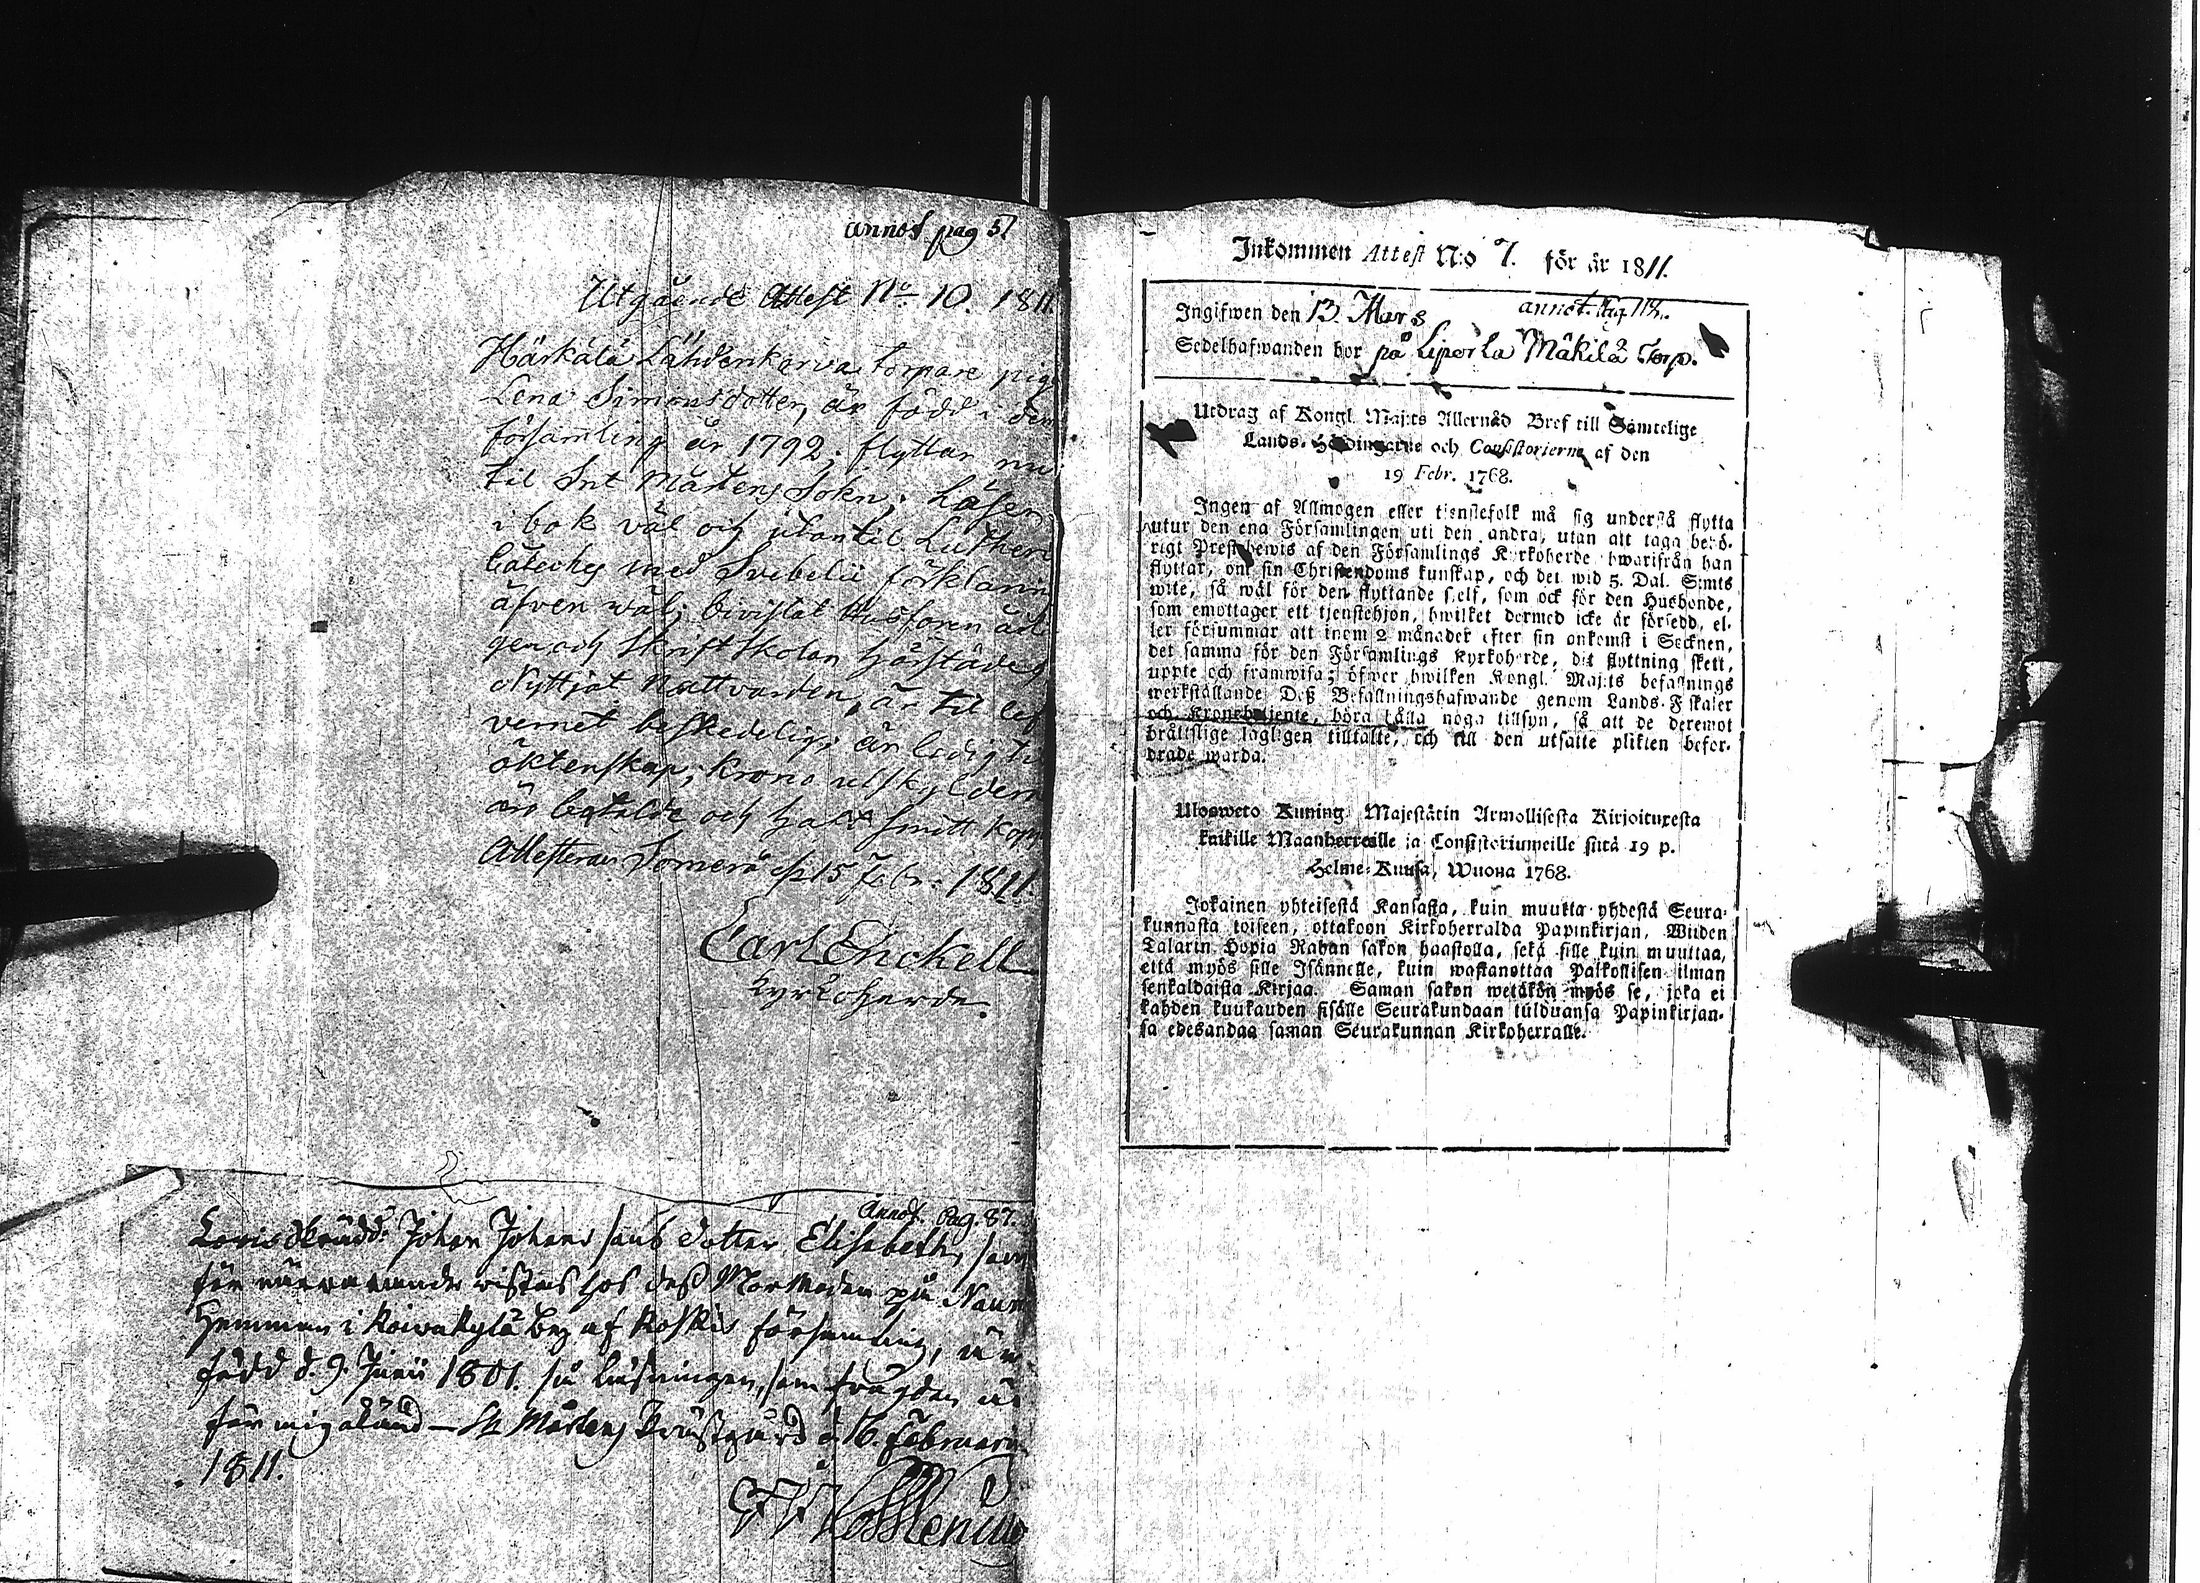 annot pag 57
Utgående Attest No 10. 1811.
Härkälä Lähdenkorva torpare pig
Lena Simonsdotter, är född i den
församling år 1792; flyttar nu
til Snt Mårtens Sokn; Läser
i bok väl och utantil Lutheri
Cateches med Svebelii förklaring
äfven väl; bevistat Husforen årl
gen och Skriftskolan härstädes
Nyttjat Nattvarden, är til lef
vernet beskedelig; är ledig ti
äktenskap; Krono utskylderne
är betalde och haft Smitt Kopp
Attesteras Somero d 15 Febr. 1811.
Carl Enckell
Kyrkoherde.
Annot. Pag. 87.
Skrädd: Johan Johans sons dotter Elisabeth, som
för närvarande vistas hos dess Mormoder på
Hemman i Koivukylä by af Koskis församling, är
född d. 9. Junii 1801. så läsningen, som frägden är
för mig okänd — St Mårtens Prästgård d 16. Februari
1811.
Inkommen Attest N:o 7. för år 1811.
Ingifwen den 13 Mars annot. Pag 112.
Sedelhafwanden bor på Liperla Mäkilä Torp.
Utdrag af Kongl. Maj:ts Allernåd Bref till Samtelige
Lands-Höfdingarne och Consistorierne af den
19 Febr. 1768.
Ingen af Allmogen eller tjenstefolk må sig understå flytta
utur den ena Församlingen uti den andra, utan att taga behö-
rigt Prestbewis af den Församlings Kyrkoherde hwarifrån han
flyttar, om sin Christendoms kunskap, och det wid 5. Dal. S:mts
wite, så wäl för den flyttande self, som ock för den Husbonde,
som emottager ett tjenstehjon, hwilket dermed icke är försedd, el-
ler försummar att inom 2 månader efter sin ankomst i Socknen,
det samma för den Församlings Kyrkoherde, dit flyttning skett,
uppte och framwisa; öfwer hwilken Kongl. Maj:ts befallnings
werkställande Deß Befallningshafwande genom Lands-Fiskaler
och Kronobetjente, böra hålla noga tillsyn, så att de deremot
brättslige lagligen tilltalte, och till den utsatte plikten befor-
drade warda.
Ulosweto Kuning. Majestätin Armollisesta Kirjoituxesta
kaikille Maanherroille ja Consistoriumeille siitä 19 p.
Helme-Kuusa, Wuona 1768.
Jokainen yhteisestä Kansasta, kuin muutta yhdestä Seura-
kunnasta toiseen, ottakoon Kirkoherralda Papinkirjan, Wiiden
Talarin Hopia Rahan sakon haastolla, sekä sille kuin muuttaa,
että myös sille Isännelle, kuin wastanottaa Palkollisen ilman
senkaldaista Kirjaa. Saman sakon wetäkön myös se, joka ei
kahden kuukauden sisälle Seurakundaan tulduansa Papinkirjan-
sa edesandaa saman Seurakunnan Kirkoherralle.